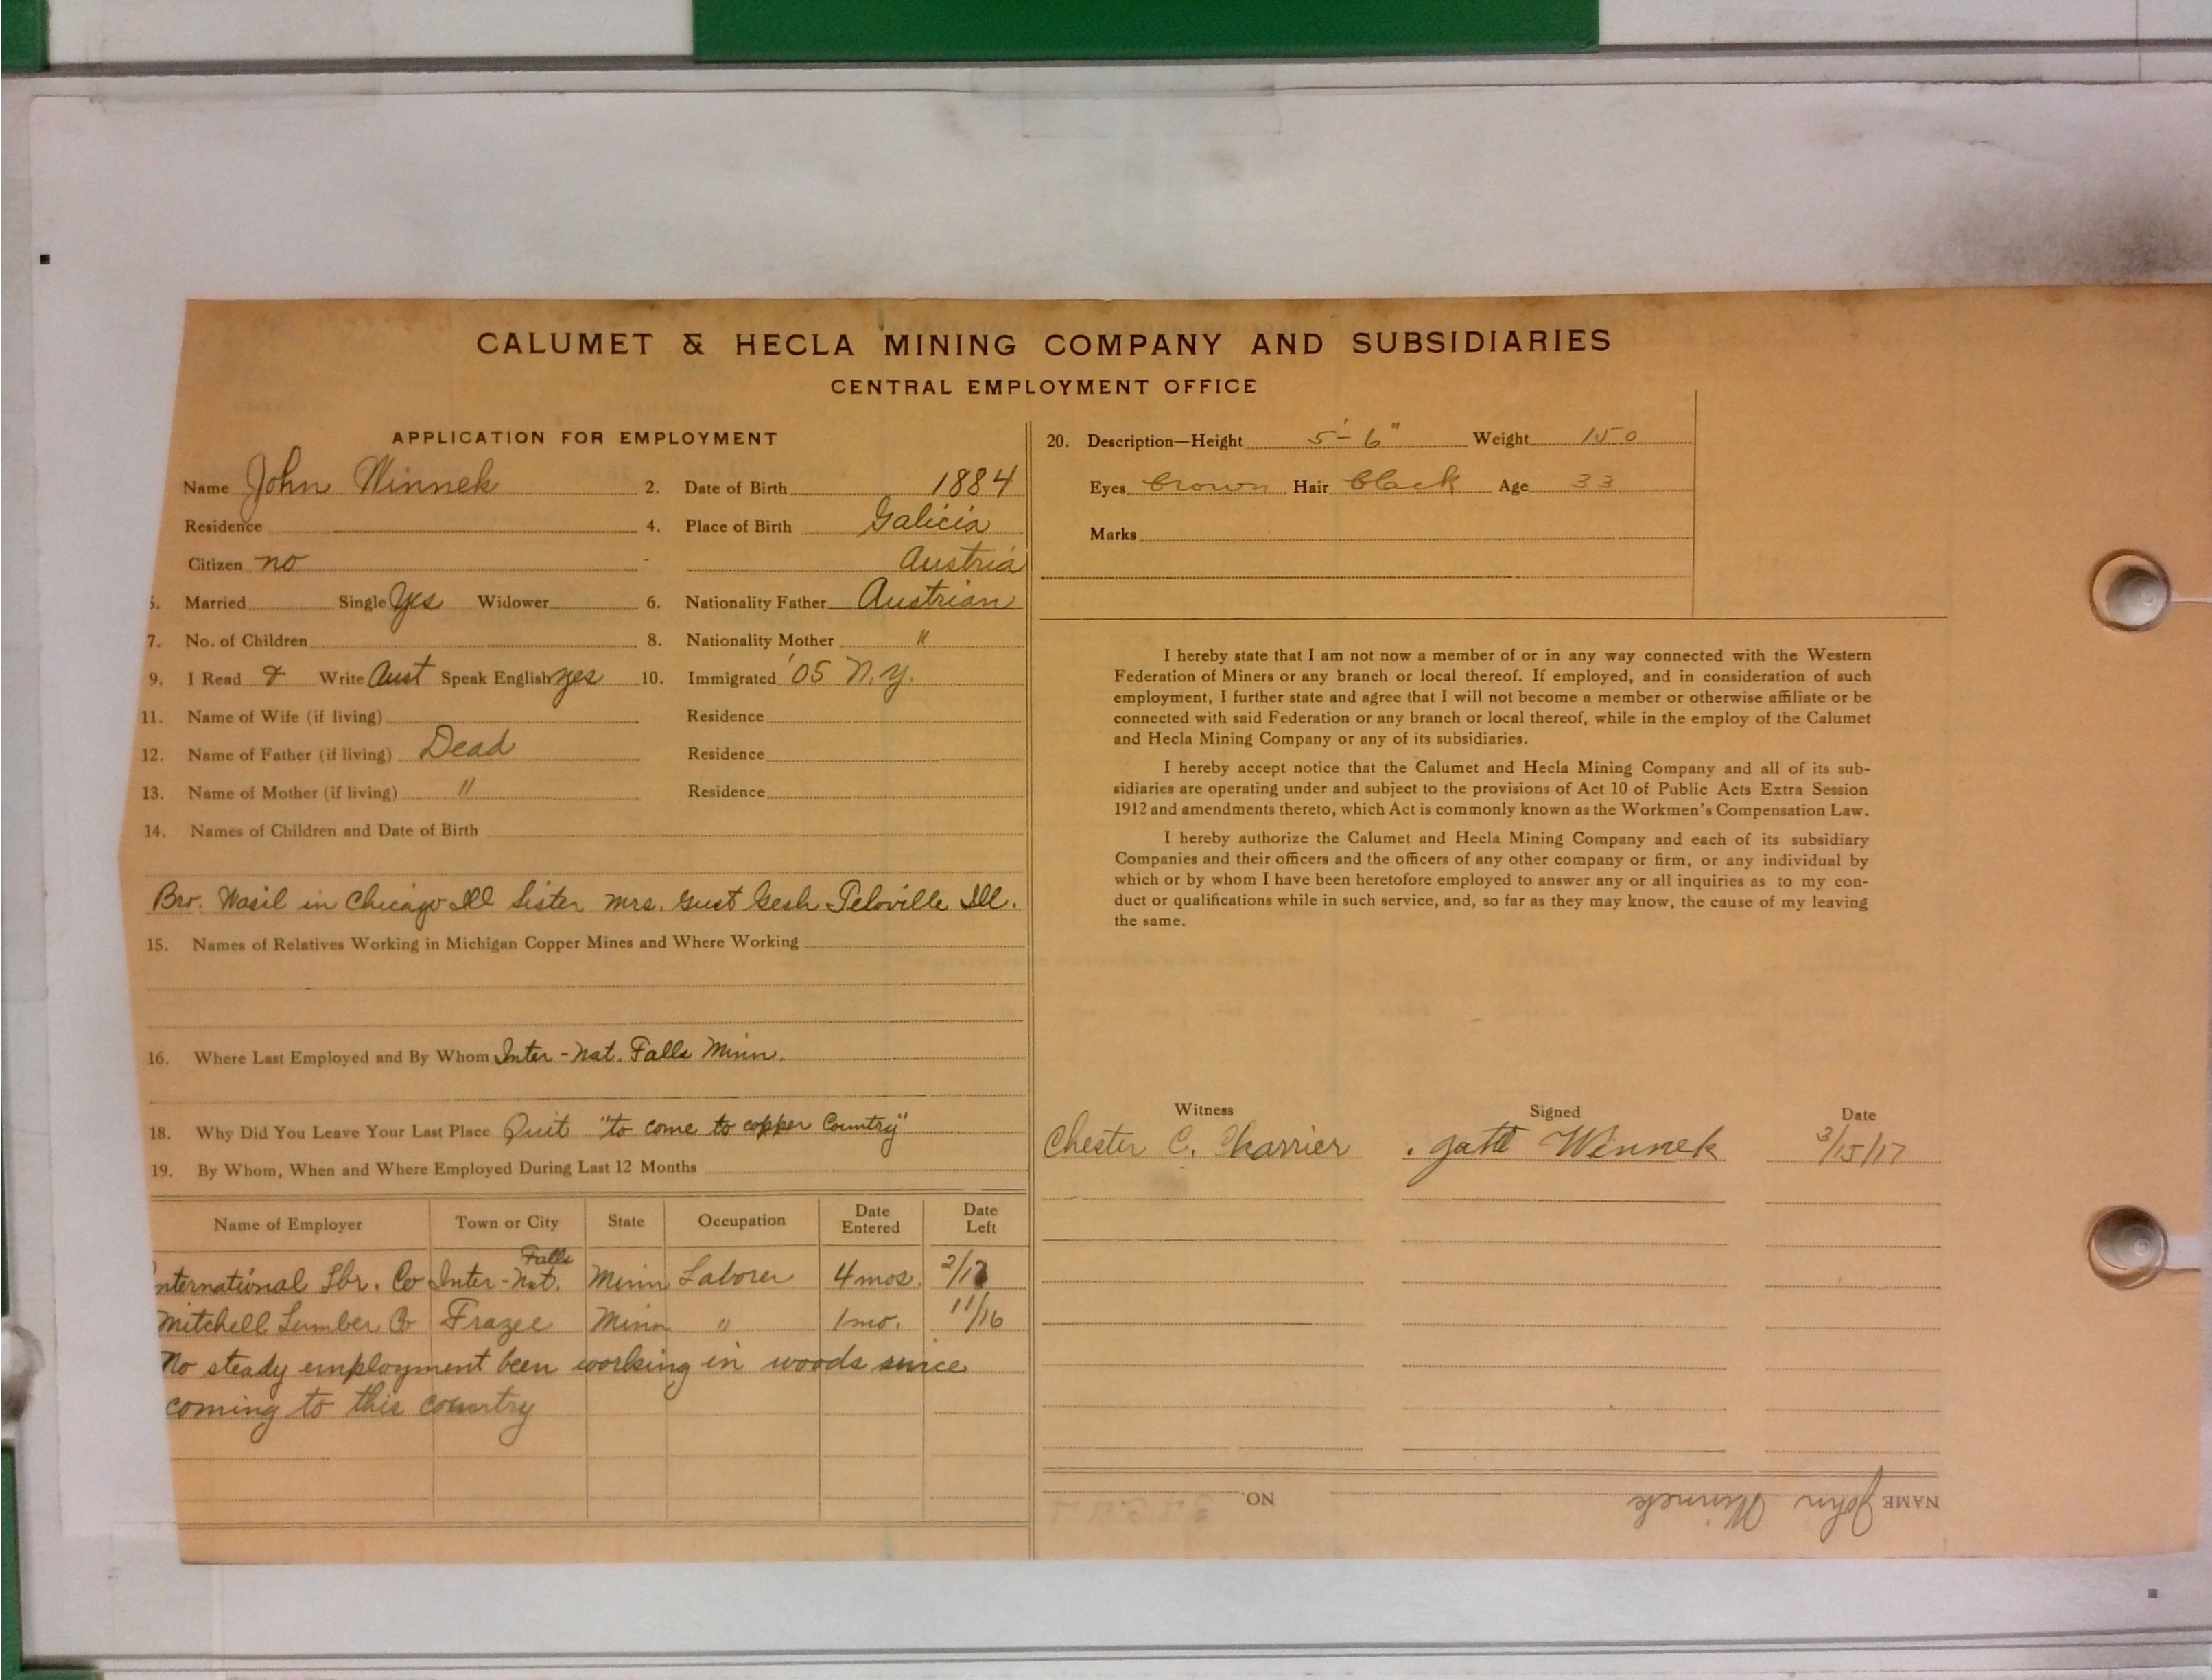 CALUMET & HECLA MINING COMPANY AND SUBSIDIARIES
CENTRAL EMPLOYMENT OFFICE
APPLICATION FOR EMPLOYMENT
Name John Winnek 2. Date of Birth 1884
Residence 4. Place of Birth Galicia
Citizen no Austria
5. Married Single yes Widower 6. Nationality Father Austrian
7. No. of Children 8. Nationality Mother "
9. I Read & Write Aust Speak English yes 10. Immigrated '05 N.Y.
11. Name of Wife (if living) Residence
12. Name of Father (if living) Dead Residence
13. Name of Mother (if living) " Residence
14. Names of Children and Date of Birth
Bro. Wasil in Chicago Ill Sister Mrs. Gust Ill.
15. Names of Relatives Working in Michigan Copper Mines and Where Working
16. Where Last Employed and By Whom Inter-Nat. Falls Minn.
18. Why Did You Leave Your Last Place Quit "to come to copper Country"
19. By Whom, When and Where Employed During Last 12 Months
Name of Employer Town or City State Occupation Date Entered Date Left
nternational Lbr. Co Inter-Nat. Falls Minn Laborer 4 mos. 2/17
Mitchell Lumber Co Frazee Minn " 1 mo. 11/16
No steady employment been working in woods since
coming to this country
20. Description—Height 5'-6" Weight 150
Eyes brown Hair black Age 33
Marks
I hereby state that I am not now a member of or in any way connected with the Western
Federation of Miners or any branch or local thereof. If employed, and in consideration of such
employment, I further state and agree that I will not become a member or otherwise affiliate or be
connected with said Federation or any branch or local thereof, while in the employ of the Calumet
and Hecla Mining Company or any of its subsidiaries.
I hereby accept notice that the Calumet and Hecla Mining Company and all of its sub-
sidiaries are operating under and subject to the provisions of Act 10 of Public Acts Extra Session
1912 and amendments thereto, which Act is commonly known as the Workmen's Compensation Law.
I hereby authorize the Calumet and Hecla Mining Company and each of its subsidiary
Companies and their officers and the officers of any other company or firm, or any individual by
which or by whom I have been heretofore employed to answer any or all inquiries as to my con-
duct or qualifications while in such service, and, so far as they may know, the cause of my leaving
the same.
Witness Signed Date
Chester C. Charrier Winnek 3/15/17
NAME John Winnek NO.